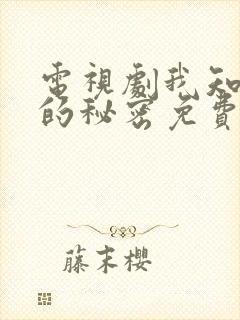 電視劇我知
的秘密免費
藤末櫻